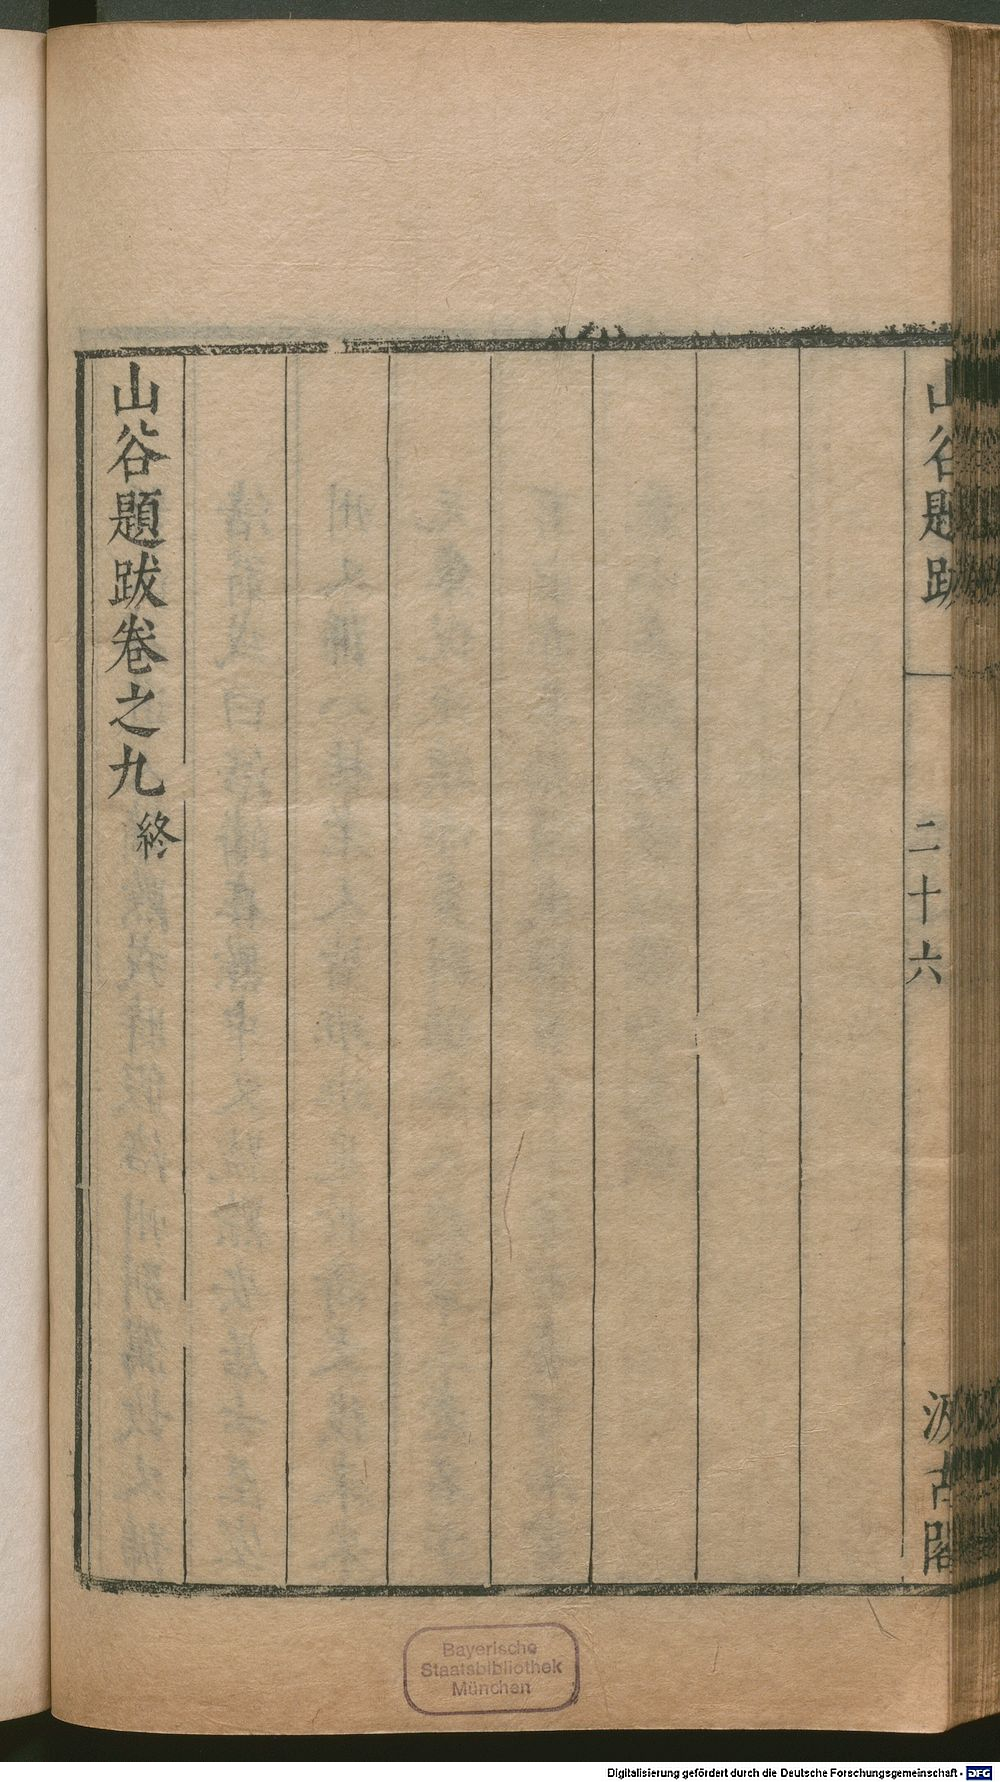 山谷題跋
二十六
汲古閣
山谷題跋卷之九終
Bayerische
Staatsbibliothek
München
Digitalisierung gefördert durch die Deutsche Forschungsgemeinschaft - DFG